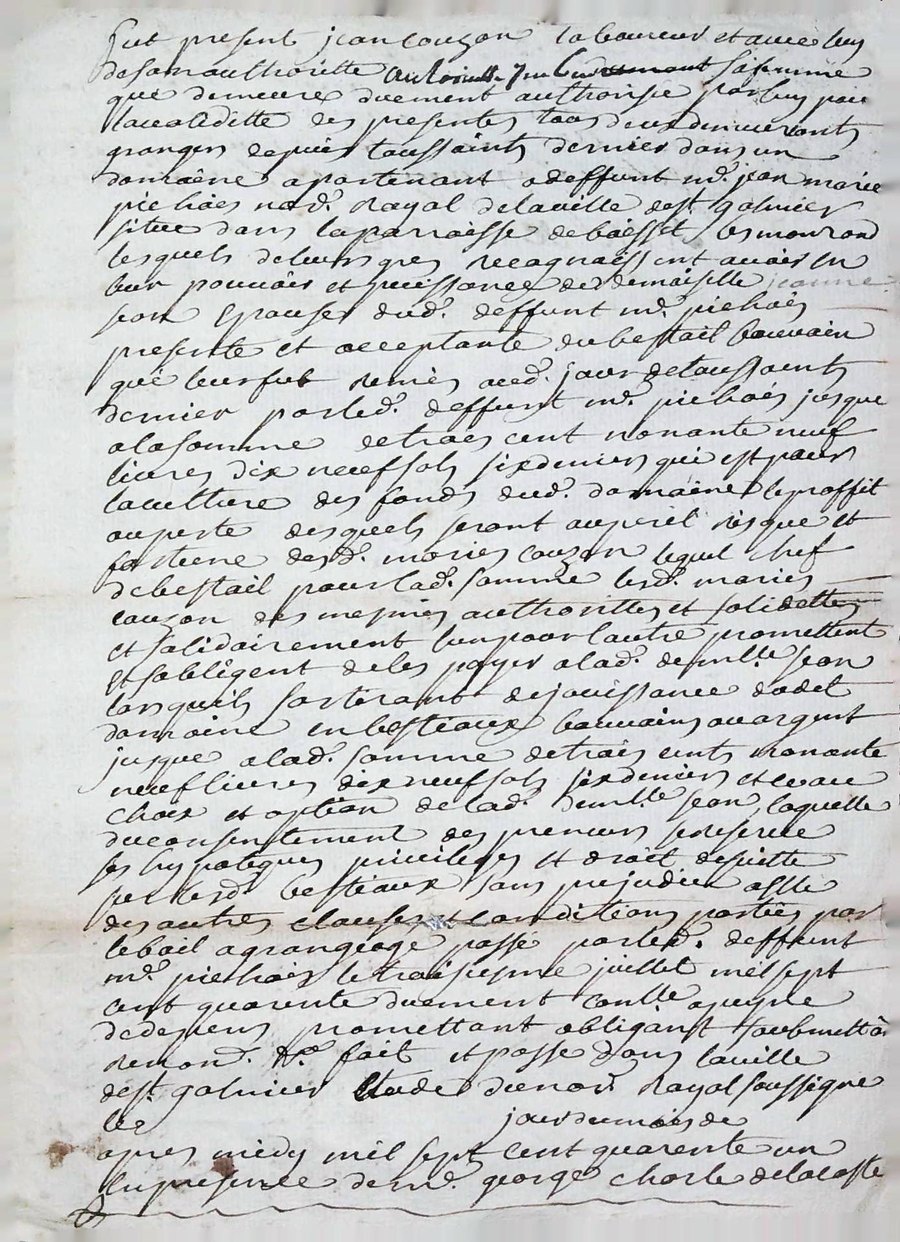 fut present jean couzon laboureur et avec luy
de son authoritte sa femme
que demeure duement authorisée par luy pour
la validitte des presentes tous deux demeurants
grangers depuis toussaints dernier dans un
domaene apartenant a deffunt mr. jean marie
pichois no.re Royal de la ville de st. galmier
situe dans la parroisse de boisset les monrond
lesquels de leurs gres recognoissent avoir en
leur pouvoir et puissance de demoiselle jeanne
jeon Epouse dud. deffunt mr. pichois
presente et acceptante du bestail bouvain
qui leur fut remis aud. jour de toussaints
dernier par led. deffunt mr. pichois jusque
a la somme de trois cent nonante neuf
livres dix neuf sols six deniers qui est pour
la culture des fonds dud. domaine le proffit
ou perte desquels seront au peril risque et
fortune desd. maries couzon lequel chef
de bestail pour lad. somme lesd. maries
couzon des mesmes authorittes et solidittes
et solidairement lun pour lautre promettent
et sobligent de les payer a lad. demlle jeon
lors quils sortiront de jouissance dudit
domaine en bestiaux bouvains ou argent
jusque a lad. somme de trois cents nonante
neuf livres dix neuf sols six deniers et ce au
choix et option de lad. demlle jeon laquelle
du consentement des preneurs se reserve
ses hypoteques privileges et droit de suitte
sur lesd. bestiaux sans prejudice a elle
des autres clauses et conditions portées par
le bail a grangeage passé par led. deffunt
mr. pichois le troisiesme juillet mil sept
cent quarente duement conllé a peyne
de depens promettant obligeant soubmettã
renon. &a fait et passé dans la ville
de st. galmier Etude du no.re Royal soussigne
le jour du mois de
apres midy mil sept cent quarente un
En presence de mr. george charle delacoste